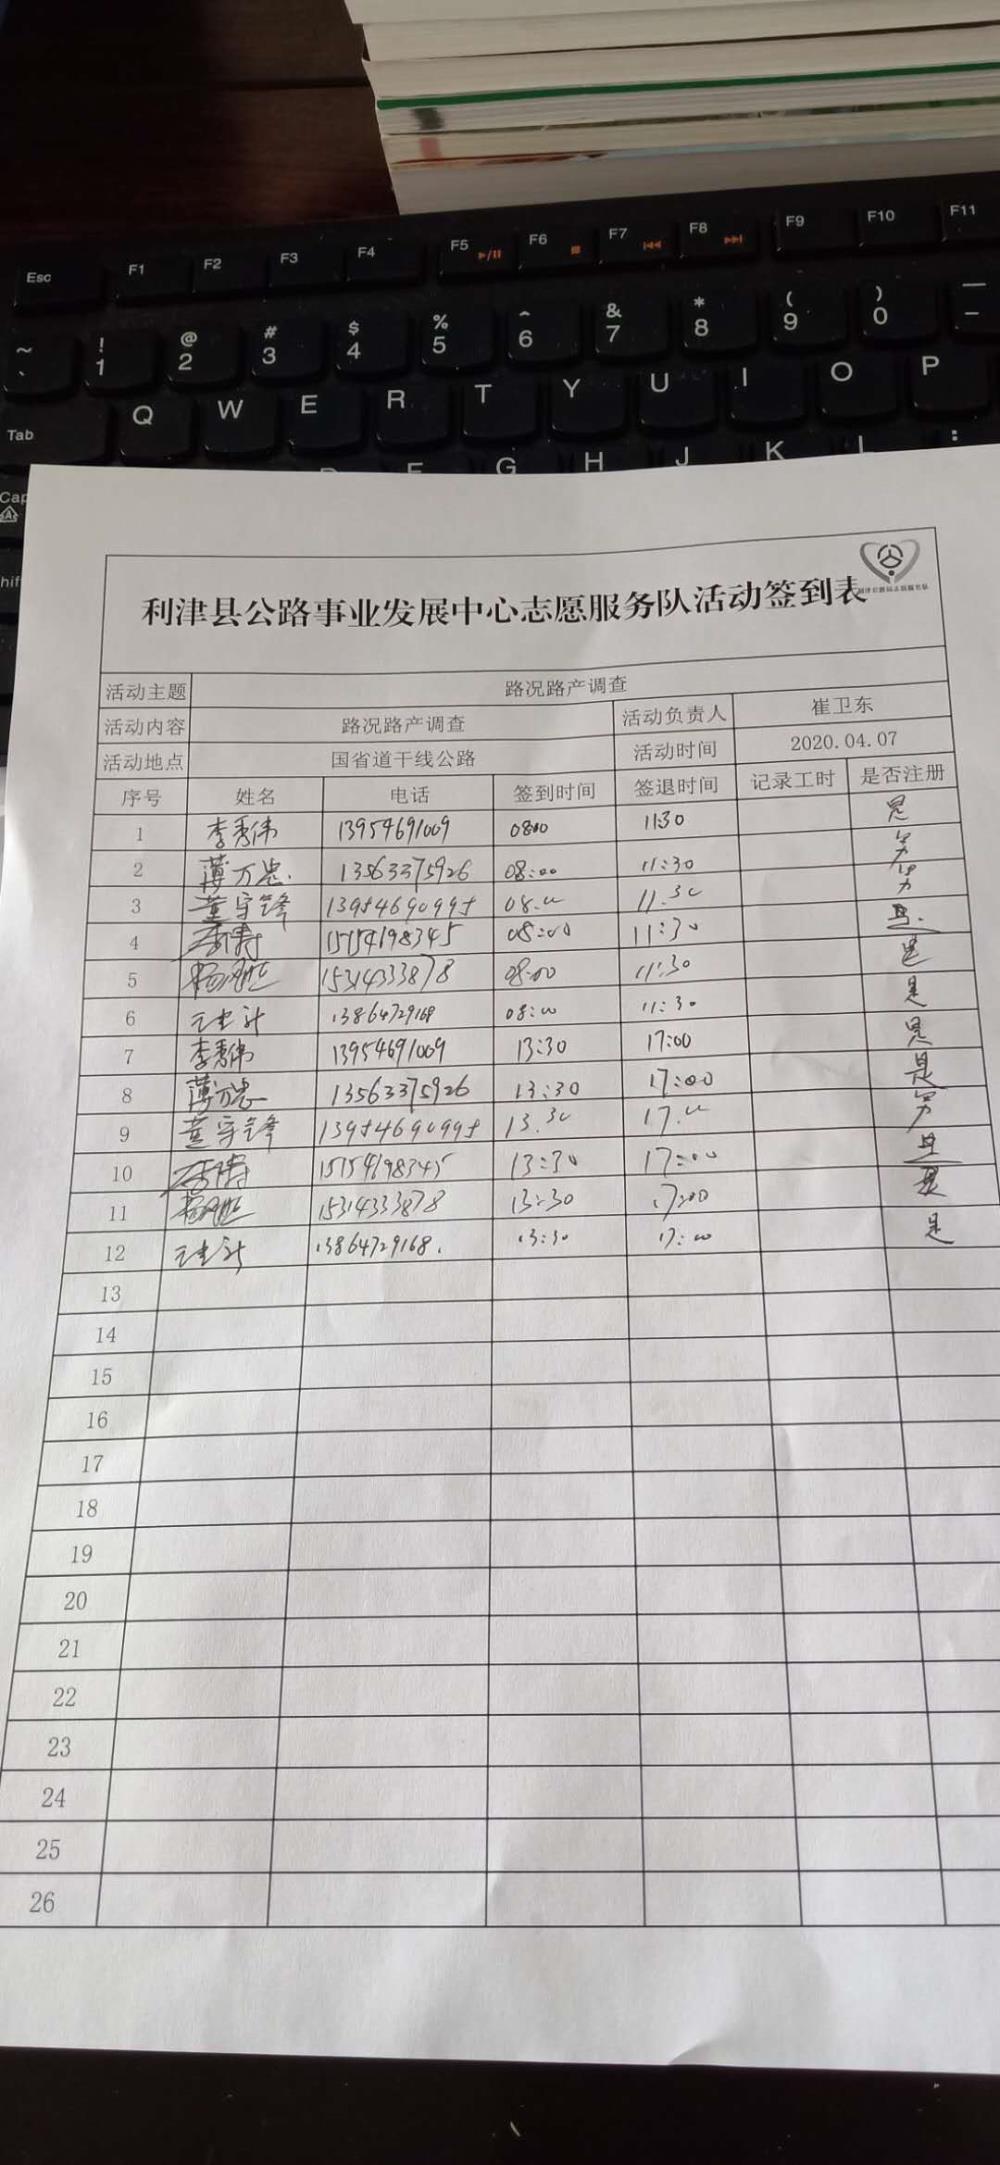 Esc F1 F2 F3 F4 F5 F6 F7 F8 F9 F10 F11
~ ` ! 1 @ 2 # 3 $ 4 % 5 ^ 6 & 7 * 8 ( 9 ) 0 — -
Tab Q W E R T Y U I O P
Cap F G H J K L :
A
hif
利津县公路事业发展中心志愿服务队活动签到表
活动主题 路况路产调查
活动内容 路况路产调查 活动负责人 崔卫东
活动地点 国省道干线公路 活动时间 2020.04.07
序号 姓名 电话 签到时间 签退时间 记录工时 是否注册
1 李秀伟 13954691009 0800 11:30 是
2 薄万忠 13563375926 08:00 11:30
3 董宇锋 13954690995 08.00 11.30
4 李涛 15154198345 08:00 11:30 是
5 15314333878 08:00 11:30 是
6 13864729168 08:00 11:30 是
7 李秀伟 13954691009 13:30 17:00 是
8 薄万忠 13563375926 13:30 17:00 是
9 董宇锋 13954690995 13.30 17.00
10 李涛 15154198345 13:30 17:00 是
11 15314333878 13:30 17:00 是
12 13864729168. 13:30 17:00 是
13
14
15
16
17
18
19
20
21
22
23
24
25
26